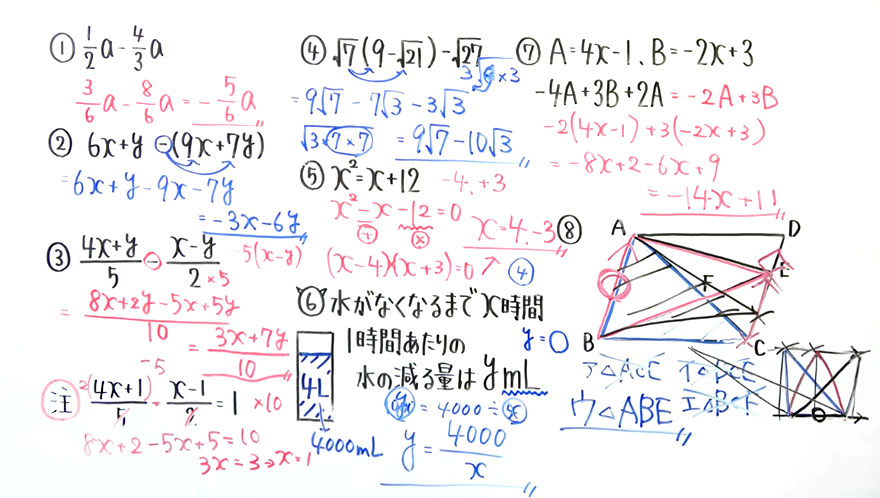 ① 1/2 a - 4/3 a
3/6 a - 8/6 a = - 5/6 a
② 6x+y -(9x+7y)
= 6x+y-9x-7y
= -3x-6y
③ (4x+y)/5 - (x-y)/2
×5
-5(x-y)
= (8x+2y-5x+5y)/10
= (3x+7y)/10
注 (4x+1)/5 - (x-1)/2 = 1 ×10
2
-5
8x+2-5x+5=10
3x=3→x=1
④ √7(9-√21)-√27
3√3
= 9√7-7√3-3√3
√3×7×7 = 9√7-10√3
⑤ x²=x+12 -4, +3
x²-x-12=0
+ ×
x=4,-3
(x-4)(x+3)=0 ↗ ④
⑥ 水がなくなるまでx時間
1時間あたりの
水の減る量はymL
y=
4L
4000mL
= 4000÷
y=4000/x
⑦ A=4x-1、B=-2x+3
-4A+3B+2A=-2A+3B
-2(4x-1)+3(-2x+3)
= -8x+2-6x+9
= -14x+11
⑧
A D
E
F
B C
ア△ACE イ△BCE
ウ△ABE エ△BCF